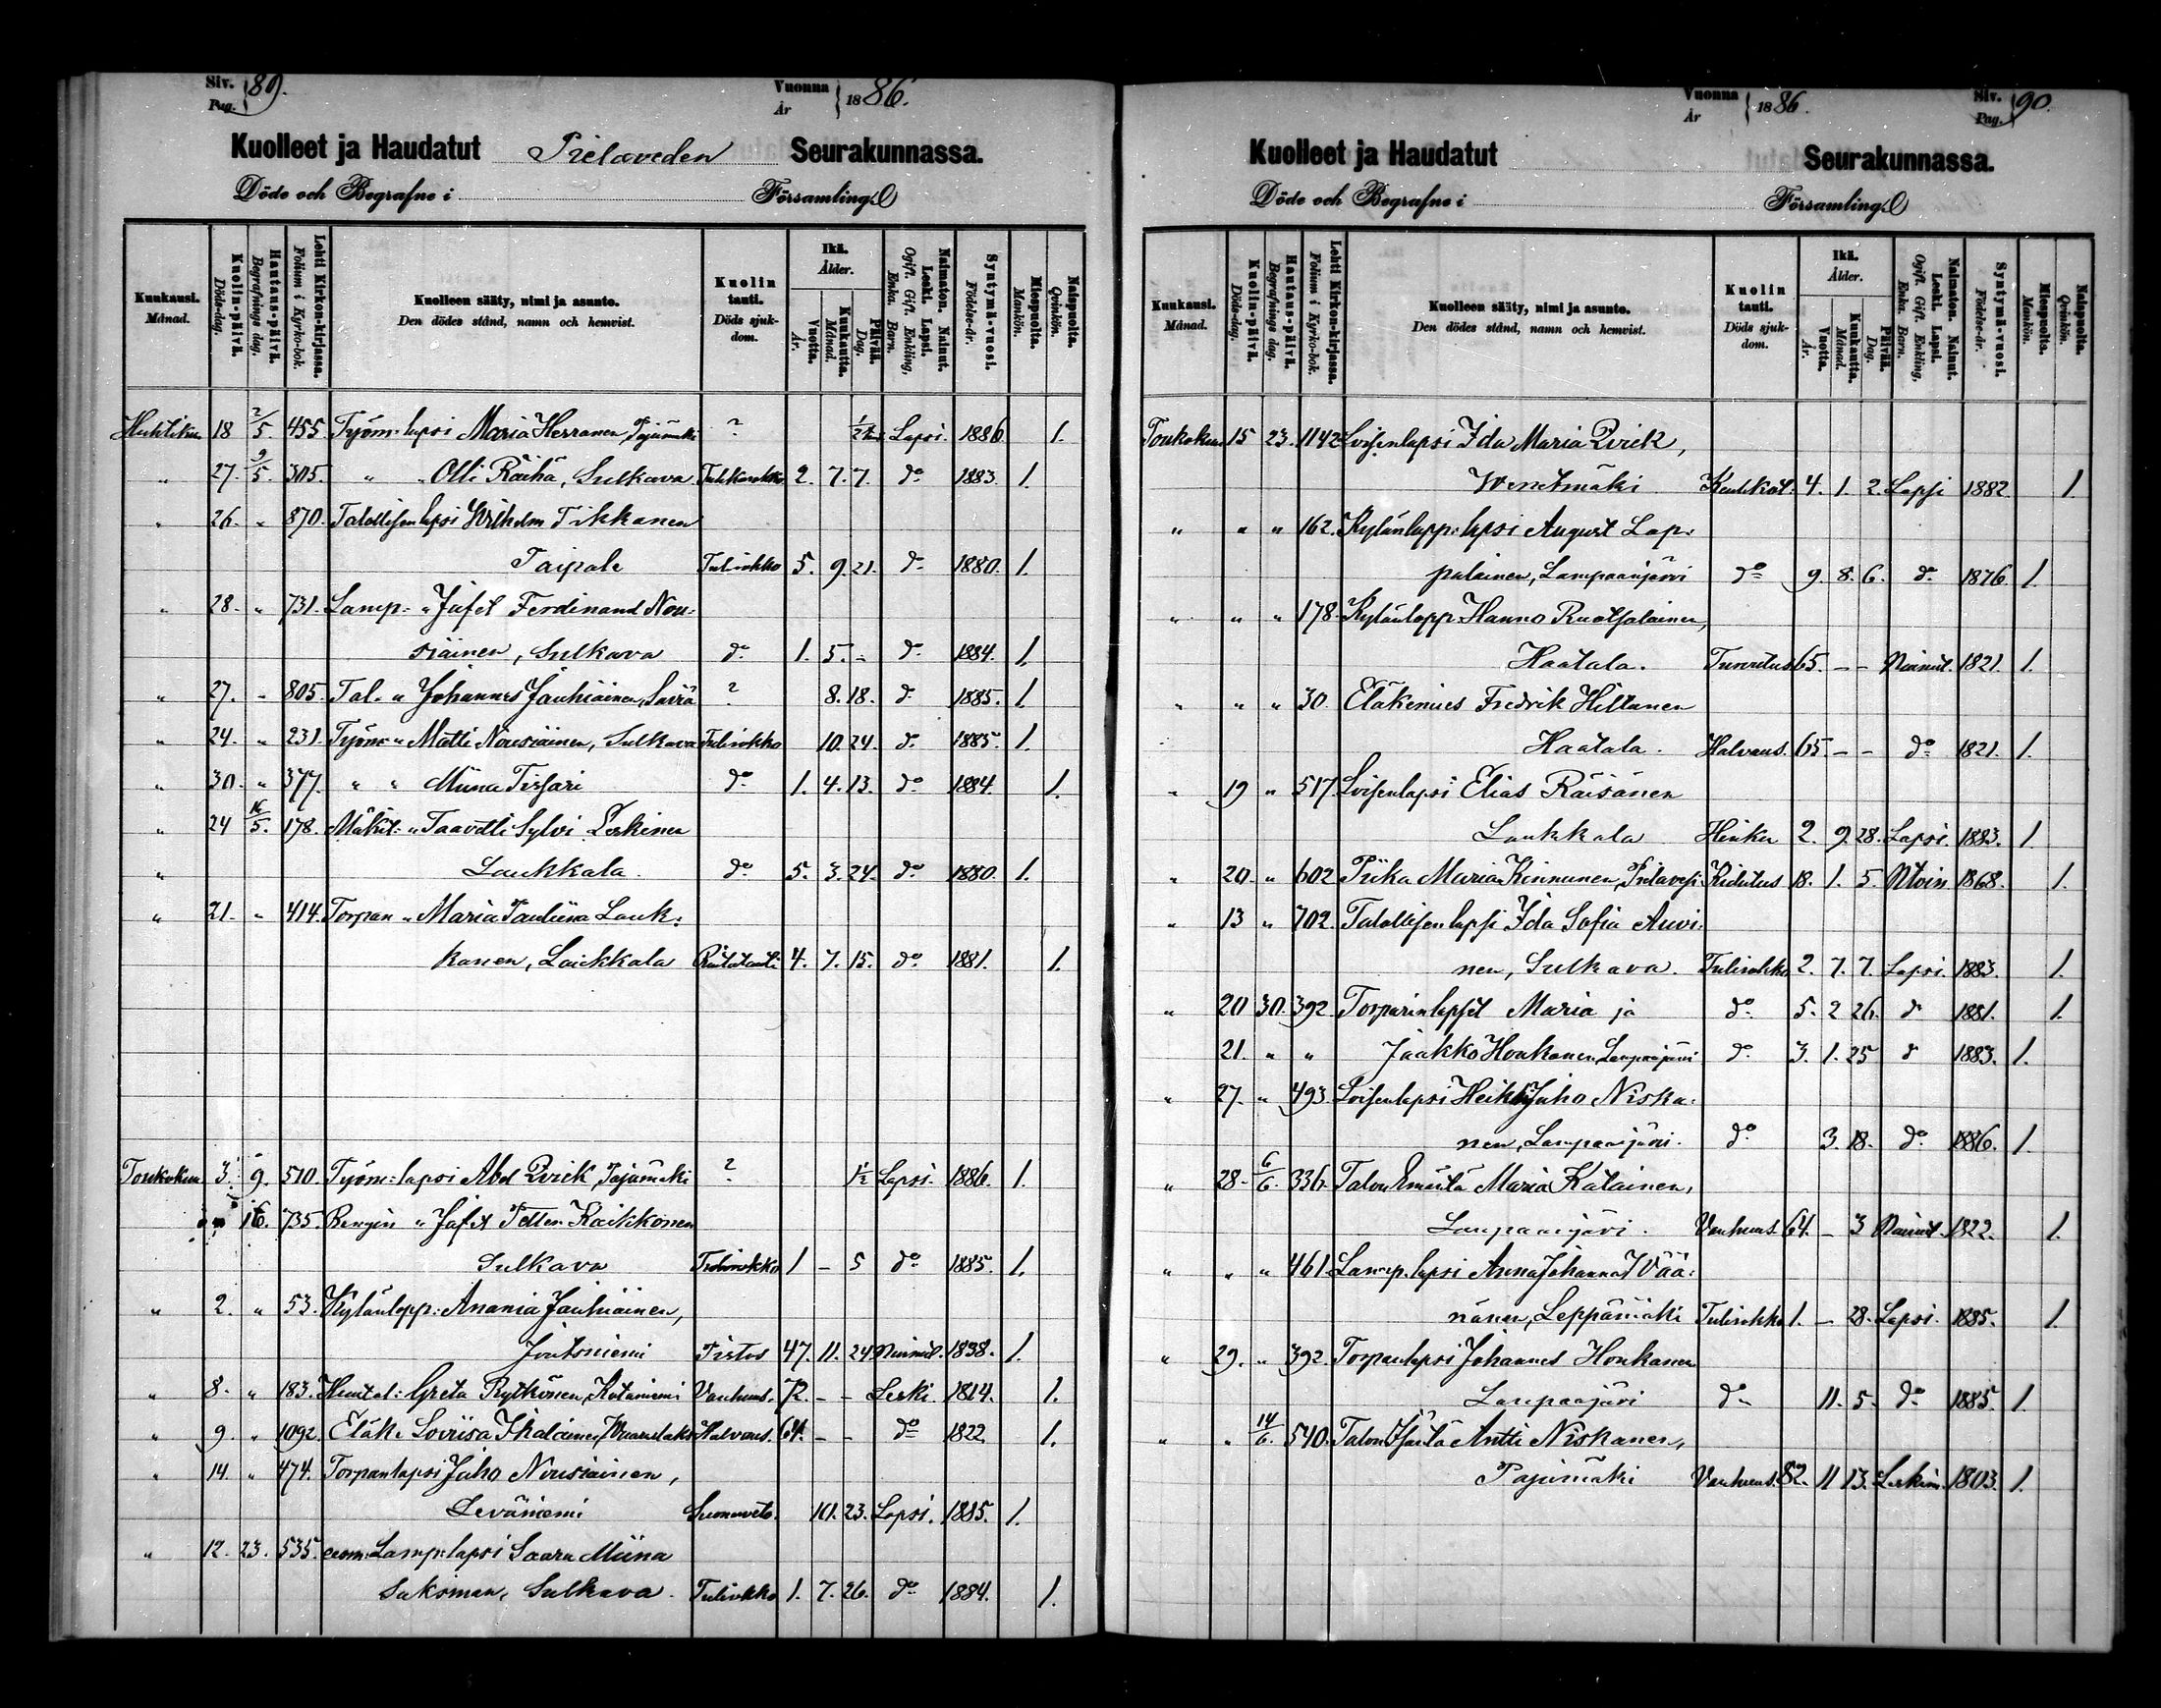 Siv. Pag. } 89.
Vuonna År } 1886.
Kuolleet ja Haudatut Pielaveden Seurakunnassa.
Döde och Begrafne i Församling
Kuukausi. Månad.
Kuolin-päivä. Döds-dag.
Hautaus-päivä. Begrafnings dag.
Lehti Kirkon-kirjassa. Folium i Kyrko-bok.
Kuolleen sääty, nimi ja asunto. Den dödes stånd, namn och hemvist.
Kuolin tauti. Döds sjukdom.
Ikä. Ålder.
Vuotta. År.
Kuukautta. Månad.
Päivää. Dag.
Naimaton. Nainut. Leski. Lapsi. Ogift. Gift. Enkling, Enka. Barn.
Syntymä-vuosi. Födelse-år.
Miespuolta. Mankön.
Naispuolta. Qvinkön.
Huhtiku 18 2/5. 455. Työm: lapsi Maria Herranen, Pajumäki ? Lapsi. 1886. 1.
" 27. 9/5. 305. " " Olli Räihä, Sulkava Tulirokko 2. 7. 7. do 1883. 1.
" 26. " 870. Talollisen lapsi Wilhelm Tikkanen
Taipale Tulirokko 5. 9. 21. do 1880. 1.
" 28. " 731. Lamp: " Jafet Ferdinand Nou-
siainen, Sulkava do 1. 5. - do 1884. 1.
" 27. " 805. Tal. " Johannes Jauhiainen, Saviä ? 8. 18. do 1885. 1.
" 24. " 231. Työm " Matti Nousiainen, Sulkava Tulirokko 10. 24. do 1885. 1.
" 30. " 377. " " Miina Tissari do 1. 4. 13. do 1884. 1.
" 24 16/5. 178. Mäkit: " Taavetti Sylvi Leskinen
" Laukkala. do 5. 3. 24. do 1880. 1.
" 21. " 414. Torpan " Maria Pauliina Lauk:
kanen, Laukkala 4. 7. 15. do 1881. 1.
Toukokuu 3. 9. 510. Työm: lapsi Abel Qvick, Pajumäki ? 1/2 Lapsi. 1886. 1.
" 16. 735. Rengin " Jafet Petter Kaikkonen
Sulkava Tulirokko 1 - 5 do 1885. 1.
" 2. " 53. Kylänlopp: Anania Jauhiainen,
Joutsniemi Pistos 47. 11. 24 Nainut. 1838. 1.
" 8. " 183. Huutol: Greta Rytkönen, Kotaniemi Vanhuus. 72. - - Leski. 1814. 1.
" 9. " 1092. Eläk. Loviisa Ihalainen, Halvaus. 64. - - do 1822. 1.
" 14. " 474. Torpanlapsi Juho Nousiainen,
Leväniemi Suonveto. 10. 23. Lapsi. 1885. 1.
" 12. 23. 535. Lamp: lapsi Saara Miina
Saksman, Sulkava. Tulirokko 1. 7. 26. do 1884. 1.
Vuonna År } 1886.
Siv. Pag. } 90.
Kuolleet ja Haudatut Seurakunnassa.
Döde och Begrafne i Församling
Kuukausi. Månad.
Kuolin-päivä. Döds-dag.
Hautaus-päivä. Begrafnings dag.
Lehti Kirkon-kirjassa. Folium i Kyrko-bok.
Kuolleen sääty, nimi ja asunto. Den dödes stånd, namn och hemvist.
Kuolin tauti. Döds sjukdom.
Ikä. Ålder.
Vuotta. År.
Kuukautta. Månad.
Päivää. Dag.
Naimaton. Nainut. Leski. Lapsi. Ogift. Gift. Enkling, Enka. Barn.
Syntymä-vuosi. Födelse-år.
Miespuolta. Mankön.
Naispuolta. Qvinkön.
Toukokuu 15 23. 1142 Loisenlapsi Ida Maria Qvick,
Wenetmäki 4. 1. 2. Lapsi 1882 1.
" " " 162. Kylänlopp: lapsi August Lap-
palainen, Lampaanjärvi do 9. 8. 6. do 1876. 1.
" " " 178. Kylänlopp. Hannu Ruotsalainen,
Haatala. Turvotus 65. - - Nainut. 1821. 1.
" " " 30 Eläkemies Fredrik Hiltunen
Haatala. Halvaus. 65. - - do 1821. 1.
" 19 " 517. Loisenlapsi Elias Räisänen
Laukkala Hinku 2. 9. 28. Lapsi. 1883. 1.
" 20. " 602 Piika Maria Kinnunen, Pielavesi. Kidutus 18. 1. 5. 1868. 1.
" 13 " 702. Talollisen lapsi Ida Sofia Auvi-
nen, Sulkava. Tulirokko 2. 7. 7. Lapsi. 1883. 1.
" 20 30. 392 Torparinlapset Maria ja do 5. 2 26. do 1881. 1.
21. " " Jaakko Honkanen Lampaanjärvi do 3. 1. 25 do 1883. 1.
" 27. " 493. Loisenlapsi Heikki Juho Niska-
nen, Lampaanjärvi. do 3. 18. do 1886. 1.
" 28. 6/6. 336. Talon Emäntä Maria Katainen,
Lampaanjärvi. Vanhuus. 64. - 3 Nainut. 1822. 1.
" " " 461 Lamp. lapsi Anna Johanna Wää-
nänen, Leppämäki Tulirokko 1. - 28. Lapsi. 1885. 1.
" 29. " 392. Torpanlapsi Johannes Honkanen
Lampaanjärvi do 11. 5. do 1885. 1
" " 14/6. 540. Talon Isäntä Antti Niskanen,
Pajumäki Vanhuus. 82. 11 13. Leskim. 1803. 1.